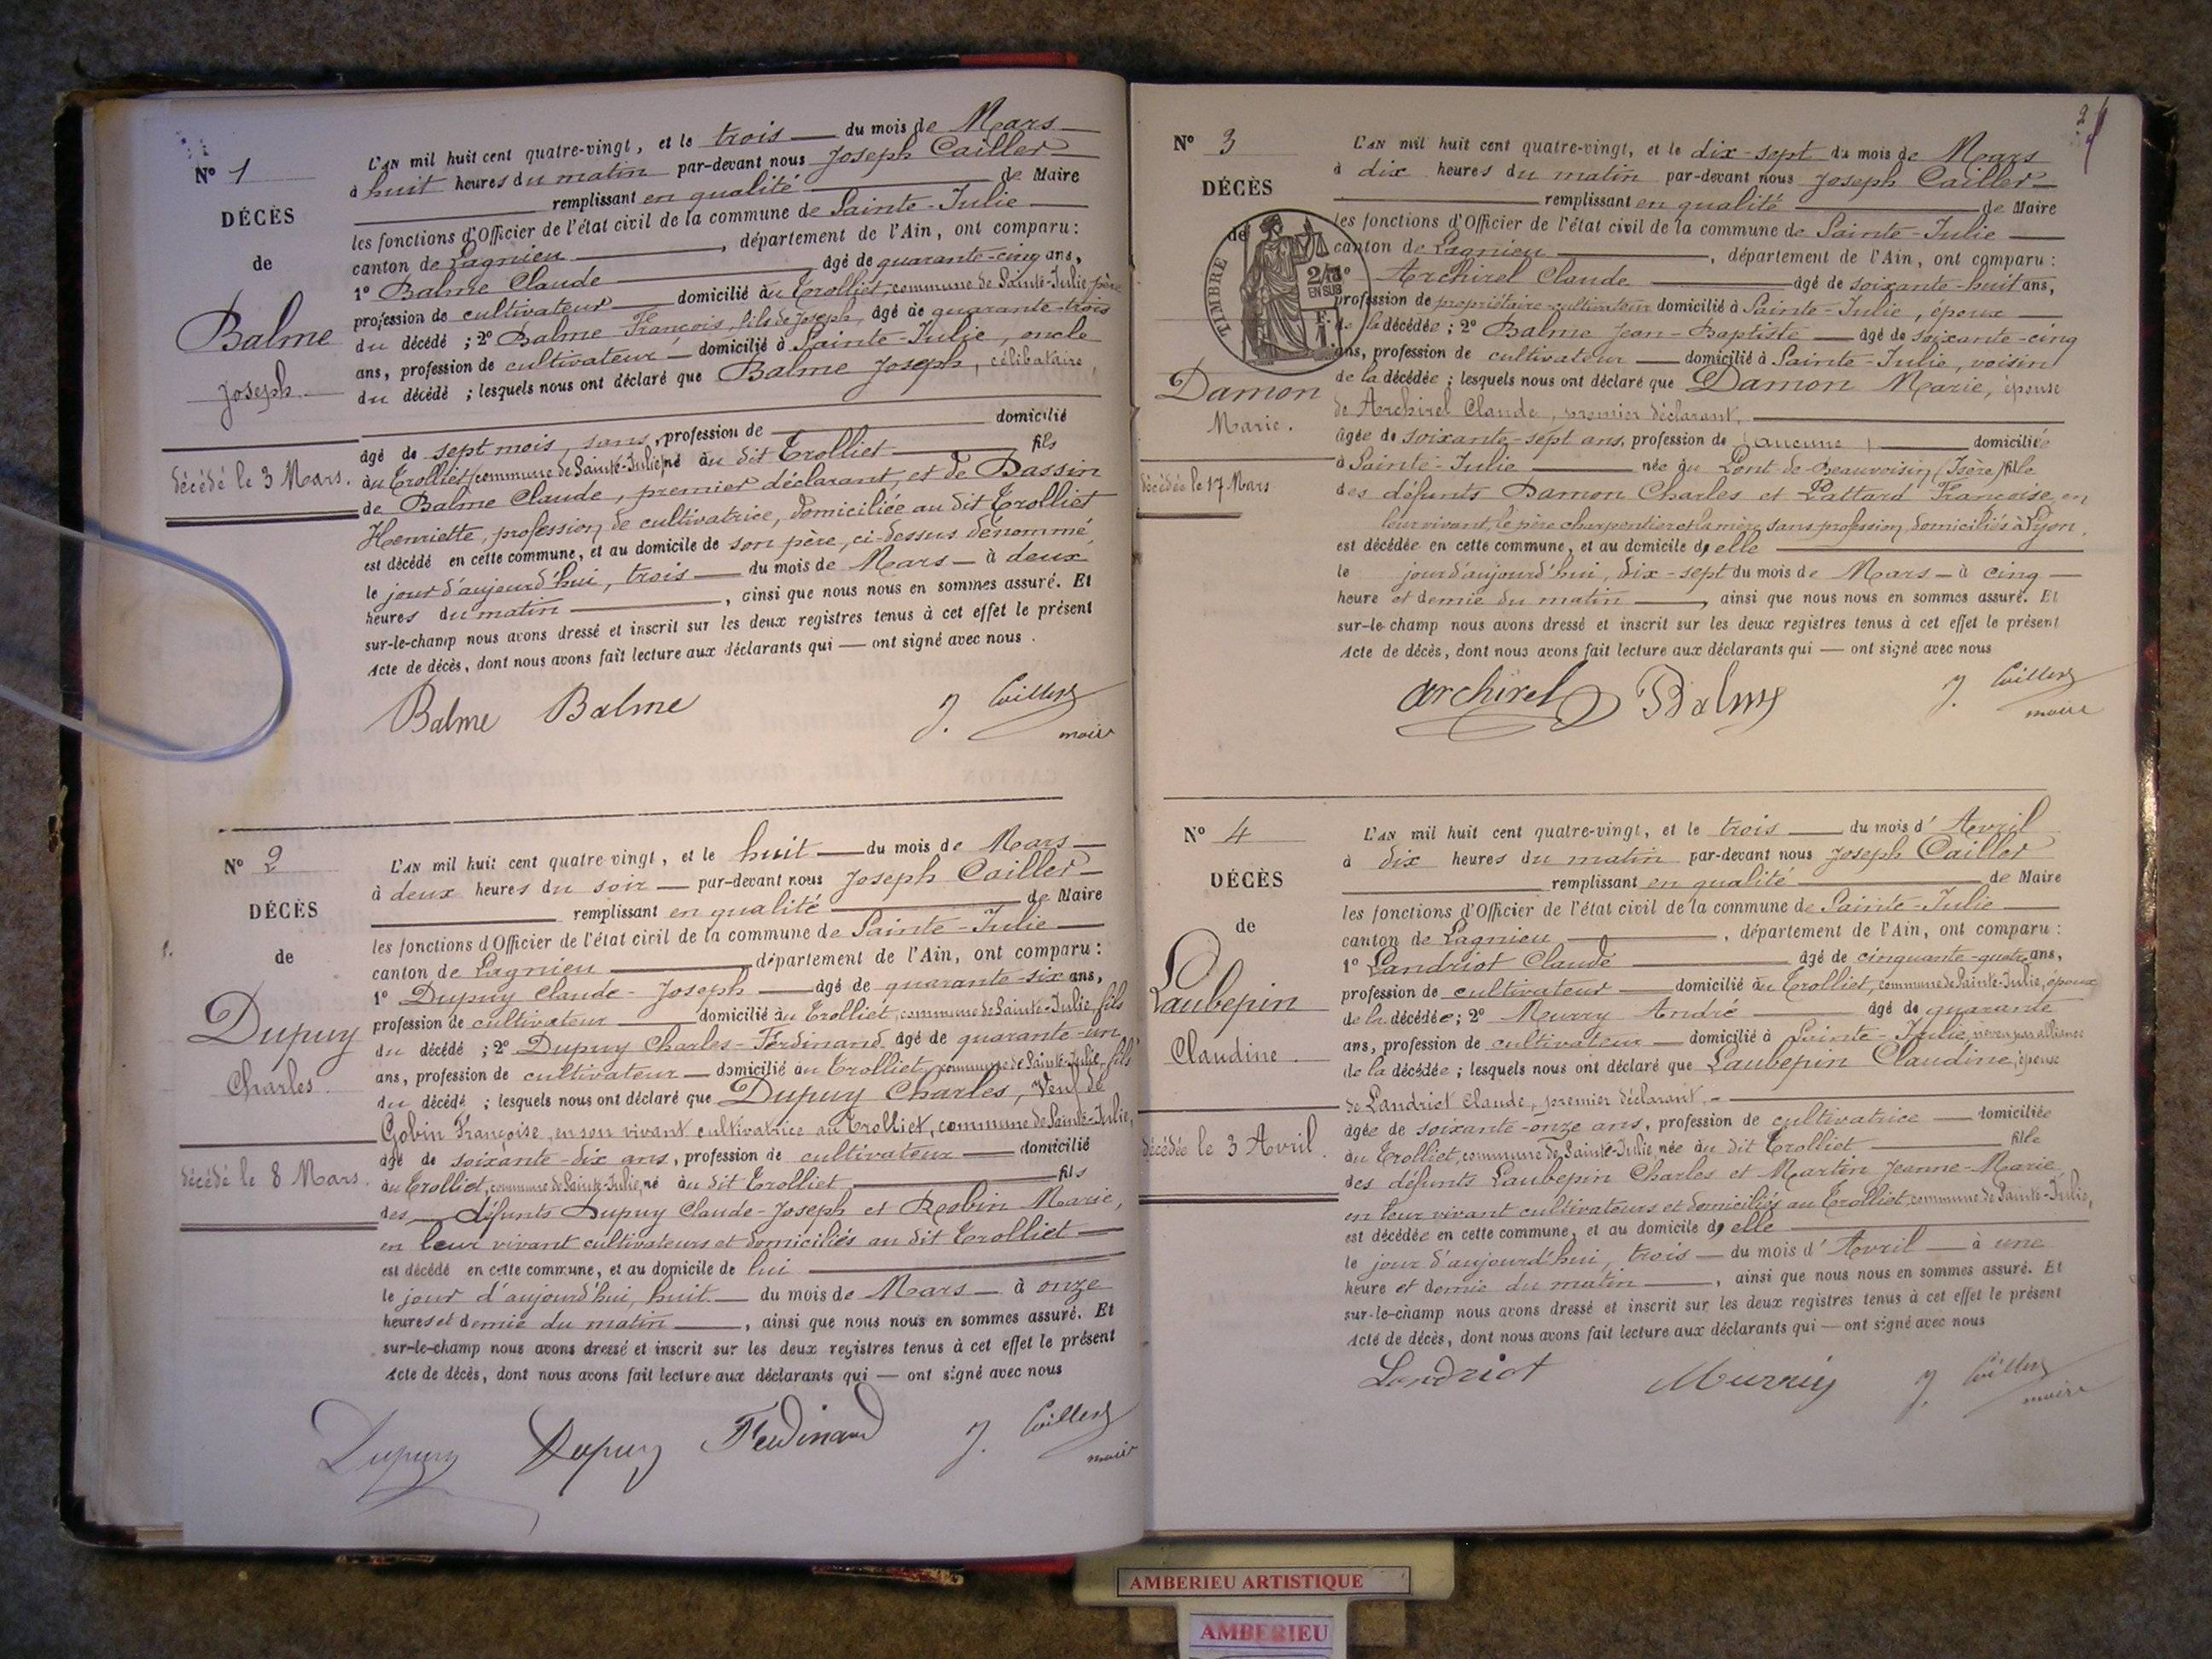 N° 1
DÉCÈS
de
Balme
Joseph.
décédé le 3 Mars.
L'AN mil huit cent quatre-vingt, et le trois — du mois de Mars —
à huit heures du matin par-devant nous Joseph Cailler —
remplissant en qualité — de Maire
les fonctions d'Officier de l'état civil de la commune de Sainte-Julie —
canton de Lagnieu —, département de l'Ain, ont comparu :
1° Balme Claude — âgé de quarante-cinq ans,
profession de cultivateur — domicilié au Trolliet, commune de Sainte-Julie, père
du décédé ; 2° Balme François, fils de Joseph, âgé de quarante-trois
ans, profession de cultivateur — domicilié à Sainte-Julie, oncle
du décédé ; lesquels nous ont déclaré que Balme Joseph, célibataire,
âgé de sept mois, sans, profession de — domicilié
au Trolliet, commune de Sainte-Julie, né au dit Trolliet — fils
de Balme Claude, premier déclarant, et de Bassin
Henriette, profession de cultivatrice, domiciliée au dit Trolliet
est décédé en cette commune, et au domicile de son père, ci-dessus dénommé,
le jour d'aujourd'hui, trois — du mois de Mars — à deux
heures du matin —, ainsi que nous nous en sommes assuré. Et
sur-le-champ nous avons dressé et inscrit sur les deux registres tenus à cet effet le présent
Acte de décès, dont nous avons fait lecture aux déclarants qui — ont signé avec nous.
Balme Balme J. Cailler
maire
N° 2
DÉCÈS
de
Dupuy
Charles.
décédé le 8 Mars.
L'AN mil huit cent quatre-vingt, et le huit — du mois de Mars —
à deux heures du soir — par-devant nous Joseph Cailler —
remplissant en qualité — de Maire
les fonctions d'Officier de l'état civil de la commune de Sainte-Julie —
canton de Lagnieu — département de l'Ain, ont comparu :
1° Dupuy Claude-Joseph — âgé de quarante-six ans,
profession de cultivateur — domicilié au Trolliet, commune de Sainte-Julie, fils
du décédé ; 2° Dupuy Charles-Ferdinand âgé de quarante-un
ans, profession de cultivateur — domicilié au Trolliet, commune de Sainte-Julie, fils
du décédé ; lesquels nous ont déclaré que Dupuy Charles, Veuf de
Gobin Françoise, en son vivant cultivatrice au Trolliet, commune de Sainte-Julie,
âgé de soixante-dix ans, profession de cultivateur — domicilié
au Trolliet, commune de Sainte-Julie, né au dit Trolliet — fils
des — défunts Dupuy Claude-Joseph et Marie,
en leur vivant cultivateurs et domiciliés au dit Trolliet —
est décédé en cette commune, et au domicile de lui —
le jour d'aujourd'hui, huit — du mois de Mars — à onze
heures et demie du matin —, ainsi que nous nous en sommes assuré. Et
sur-le-champ nous avons dressé et inscrit sur les deux registres tenus à cet effet le présent
Acte de décès, dont nous avons fait lecture aux déclarants qui — ont signé avec nous
Dupuy Dupuy Ferdinand J. Cailler
maire
2
N° 3
DÉCÈS
de
TIMBRE
2/10
EN SUS
Damon
Marie.
décédée le 17 Mars
L'AN mil huit cent quatre-vingt, et le dix-sept du mois de Mars
à dix heures du matin par-devant nous Joseph Cailler —
remplissant en qualité — de Maire
les fonctions d'Officier de l'état civil de la commune de Sainte-Julie —
canton de Lagnieu —, département de l'Ain, ont comparu :
1° Archirel Claude — âgé de soixante-huit ans,
profession de propriétaire-cultivateur domicilié à Sainte-Julie, époux —
de la décédée ; 2° Balme Jean-Baptiste — âgé de soixante-cinq
ans, profession de cultivateur — domicilié à Sainte-Julie, voisin
de la décédée ; lesquels nous ont déclaré que Damon Marie, épouse
de Archirel Claude, premier déclarant, —
âgée de soixante-sept ans, profession de (aucune) — domiciliée
à Sainte-Julie — née au Pont-de-Beauvoisin (Isère) fille
des défunts Damon Charles et Pattard Françoise, en
leur vivant, le père charpentier et la mère sans profession, domiciliés à Lyon.
est décédée en cette commune, et au domicile d'elle —
le jour d'aujourd'hui, dix-sept du mois de Mars — à cinq —
heure et demie du matin —, ainsi que nous nous en sommes assuré. Et
sur-le-champ nous avons dressé et inscrit sur les deux registres tenus à cet effet le présent
Acte de décès, dont nous avons fait lecture aux déclarants qui — ont signé avec nous
Archirel Balme J. Cailler
maire
N° 4
DÉCÈS
de
Laubepin
Claudine.
décédée le 3 Avril.
L'AN mil huit cent quatre-vingt, et le trois — du mois d'Avril
à dix heures du matin par-devant nous Joseph Cailler
remplissant en qualité — de Maire
les fonctions d'Officier de l'état civil de la commune de Sainte-Julie —
canton de Lagnieu —, département de l'Ain, ont comparu :
1° Landriot Claude — âgé de cinquante-quatre ans,
profession de cultivateur — domicilié au Trolliet, commune de Sainte-Julie, époux
de la décédée ; 2° Murry André — âgé de quarante
ans, profession de cultivateur — domicilié à Sainte-Julie, neveu par alliance
de la décédée ; lesquels nous ont déclaré que Laubepin Claudine, épouse
de Landriot Claude, premier déclarant, —
âgée de soixante-onze ans, profession de cultivatrice — domiciliée
au Trolliet, commune de Sainte-Julie, née au dit Trolliet — fille
des défunts Laubepin Charles et Martin Jeanne-Marie
en leur vivant cultivateurs et domiciliés au Trolliet, commune de Sainte-Julie,
est décédée en cette commune, et au domicile d'elle —
le jour d'aujourd'hui, trois — du mois d'Avril — à une
heure et demie du matin —, ainsi que nous nous en sommes assuré. Et
sur-le-champ nous avons dressé et inscrit sur les deux registres tenus à cet effet le présent
Acte de décès, dont nous avons fait lecture aux déclarants qui — ont signé avec nous
Landriot Murry J. Cailler
maire
AMBERIEU ARTISTIQUE
AMBERIEU